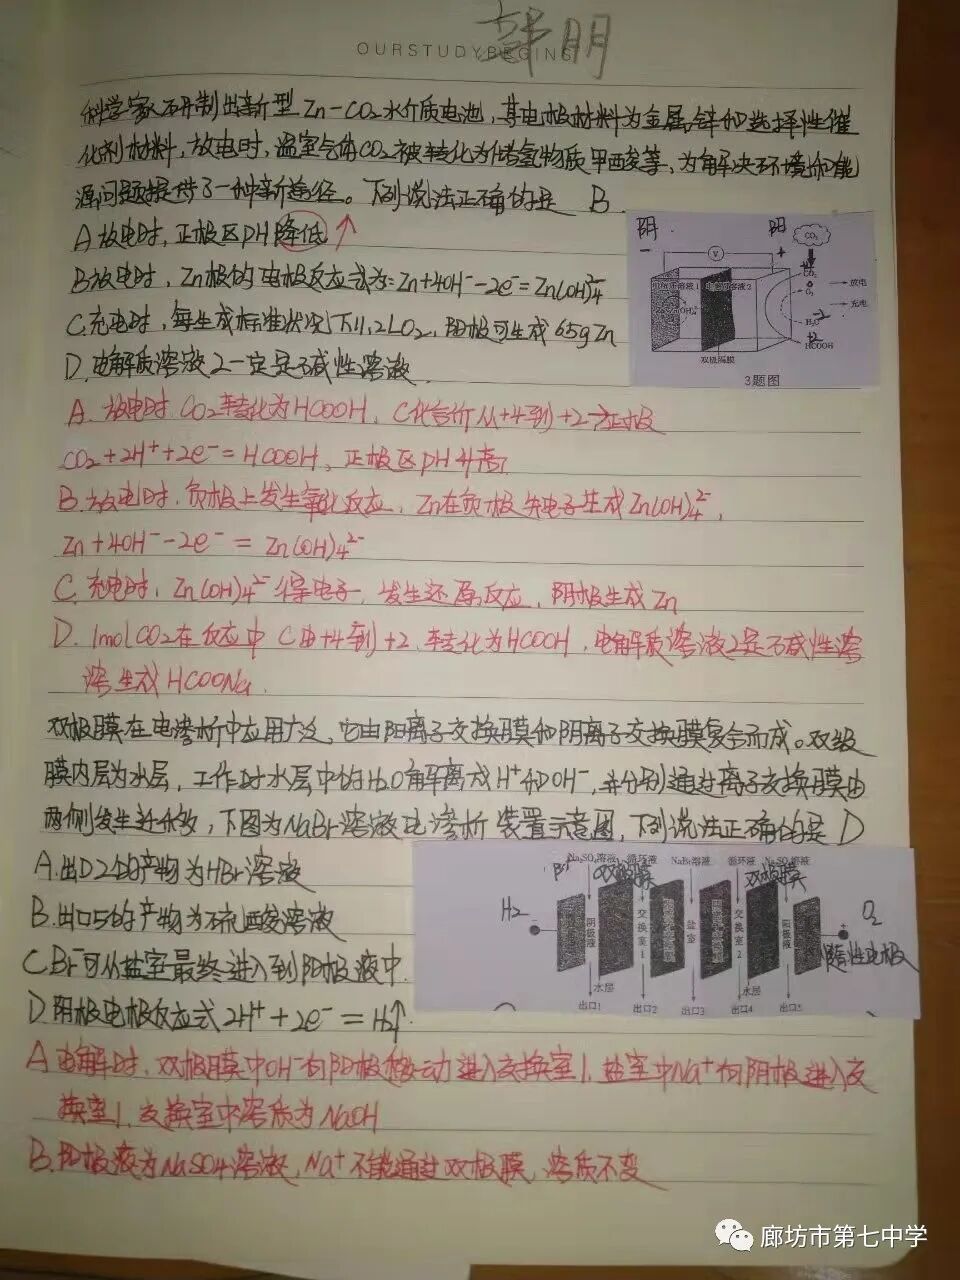 韩明
OURSTUDYBEGINS
科学家研制出新型Zn-CO2水介质电池,其电极材料为金属锌和选择性催
化剂材料,放电时,温室气体CO2被转化为储氢物质甲酸等,为解决环境和能
源问题提供了一种新途径。下列说法正确的是 B
A放电时,正极区PH降低↑
B放电时,Zn极的电极反应式为:Zn+4OH⁻-2e⁻=Zn(OH)₄²⁻
C.充电时,每生成标准状况下11.2LO2,阳极可生成65gZn
D.电解质溶液2一定是碱性溶液.
阴 阳
- V +
CO₂
CO₂
O₂
H₂O -2
+2
HCOOH
放电
充电
电解质溶液1 电解质溶液2
Zn/Zn(OH)₄²⁻
双极隔膜
3题图
A.放电时.CO2转化为HCOOH,C化合价从+4到+2 为正极
CO2+2H⁺+2e⁻=HCOOH,正极区PH升高
B.放电时.负极上发生氧化反应,Zn在负极失电子生成Zn(OH)₄²⁻,
Zn+4OH⁻-2e⁻=Zn(OH)₄²⁻
C.充电时,Zn(OH)₄²⁻得电子,发生还原反应,阴极生成Zn
D.1molCO2在反应中 C由+4到+2,转化为HCOOH,电解质溶液2是碱性溶
溶生成HCOONa.
双极膜在电渗析中应用广泛,它由阳离子交换膜和阴离子交换膜复合而成。双级
膜内层为水层,工作时水层中的H2O解离成H⁺和OH⁻,并分别通过离子交换膜向
两侧发生迁移,下图为NaBr溶液电渗析装置示意图,下列说法正确的是D
A.出口2的产物为HBr溶液
B.出口5的产物为硫酸溶液
C.Br⁻可从盐室最终进入到阳极液中.
D.阴极电极反应式2H⁺+2e⁻=H₂↑.
Na₂SO₄溶液 循环液 NaBr溶液 循环液 Na₂SO₄溶液
双极膜 双极膜
H2 - + O2
惰性电极
阴极液 交换室1 盐室 交换室2 阳极液
水层 水层
出口1 出口2 出口3 出口4 出口5
A电解时,双极膜中OH⁻向阳极移动进入交换室1,盐室中Na⁺向阴极进入交
换室1,交换室中溶质为NaOH
B.阳极液为NaSO4溶液,Na⁺不能通过双极膜,溶质不变
廊坊市第七中学